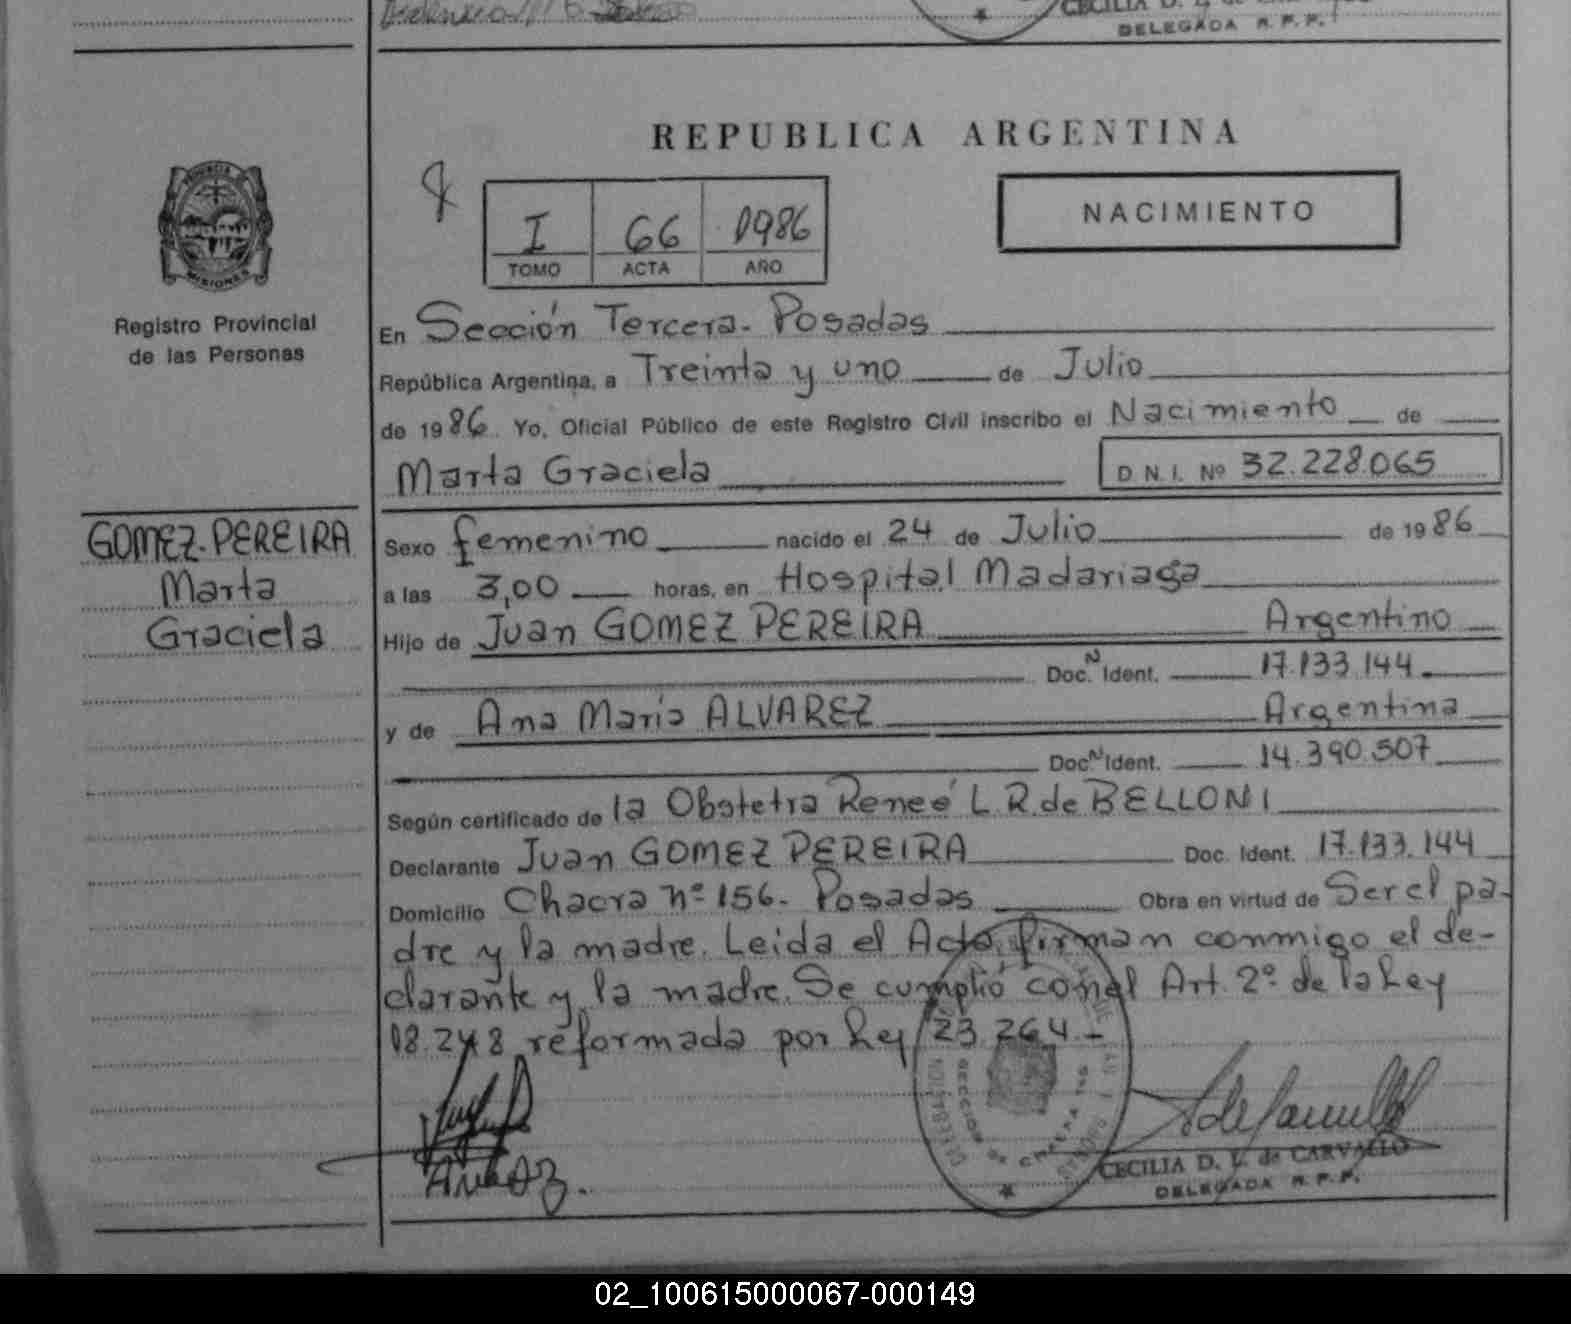 DELEGADA R. P. P.
REPUBLICA ARGENTINA
I 66 1986
TOMO ACTA AÑO
NACIMIENTO
MISIONES
Registro Provincial
de las Personas
En Sección Tercera. Posadas
República Argentina, a Treinta y uno de Julio
de 1986. Yo, Oficial Público de este Registro Civil inscribo el Nacimiento de
Marta Graciela D. N. I. Nº 32.228.065
GOMEZ PEREIRA
Marta
Graciela
Sexo femenino nacido el 24 de Julio de 1986
a las 3,00 horas, en Hospital Madariaga
Hijo de Juan GOMEZ PEREIRA Argentino
Doc. N Ident. 17.133.144
y de Ana María ALVAREZ Argentina
Doc. N Ident. 14.390.507
Según certificado de la Obstetra Reneé L.R. de BELLONI
Declarante Juan GOMEZ PEREIRA Doc. Ident. 17.133.144
Domicilio Chacra nº 156. Posadas Obra en virtud de Ser el pa-
dre y la madre. Leida el Acta, firman conmigo el de-
clarante y la madre. Se cumplió con el Art. 2º de la Ley
18.248 reformada por Ley 23.264.-
CECILIA D. L. de CARVALLO
DELEGADA R. P. P.
02_100615000067-000149